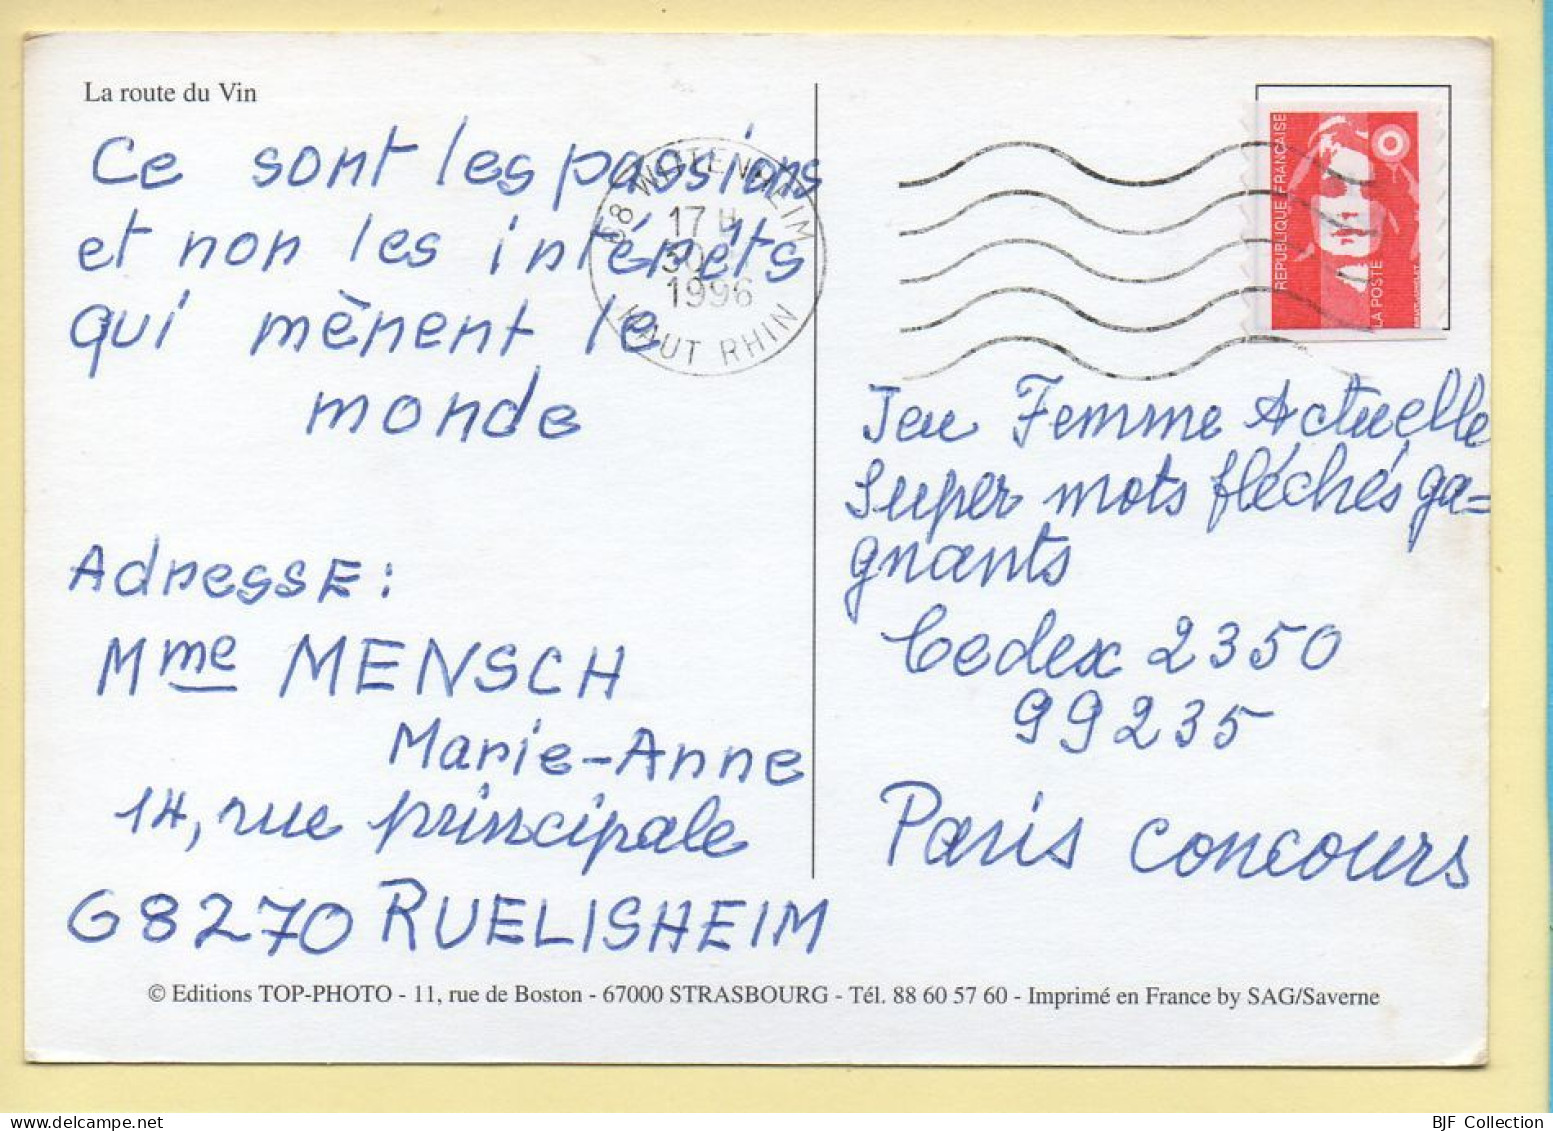 La route du Vin
Ce sont les passions
et non les intérêts
qui mènent le
monde
Adresse :
Mme MENSCH
Marie-Anne
14, rue principale
68270 RUELISHEIM
68 WITTENHEIM
17 H
30
1996
HAUT RHIN
REPUBLIQUE FRANÇAISE
LA POSTE
Jeu Femme Actuelle
Super mots fléchés ga=
gnants
Cedex 2350
99235
Paris concours
© Editions TOP-PHOTO - 11, rue de Boston - 67000 STRASBOURG - Tél. 88 60 57 60 - Imprimé en France by SAG/Saverne
BJF Collection